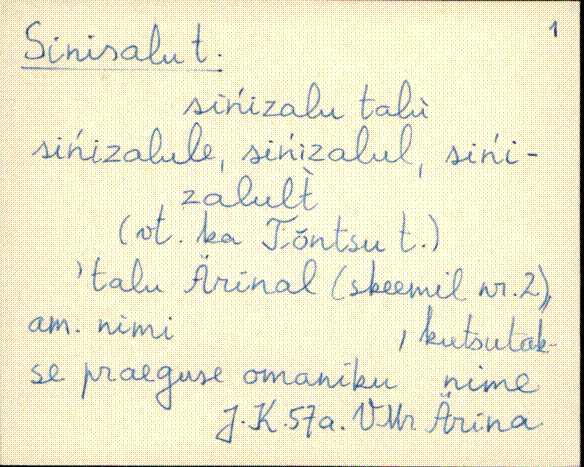 1
Sinisalu t.
sińizalu talù
sińizalule, sińizalul, sińi-
zalult̀
(vt. ka Tõntsu t.)
'talu Ärinal (skeemil nr. 2),
am. nimi , kutsutak-
se praeguse omaniku nime
J.K. 57a. VMr Ärina